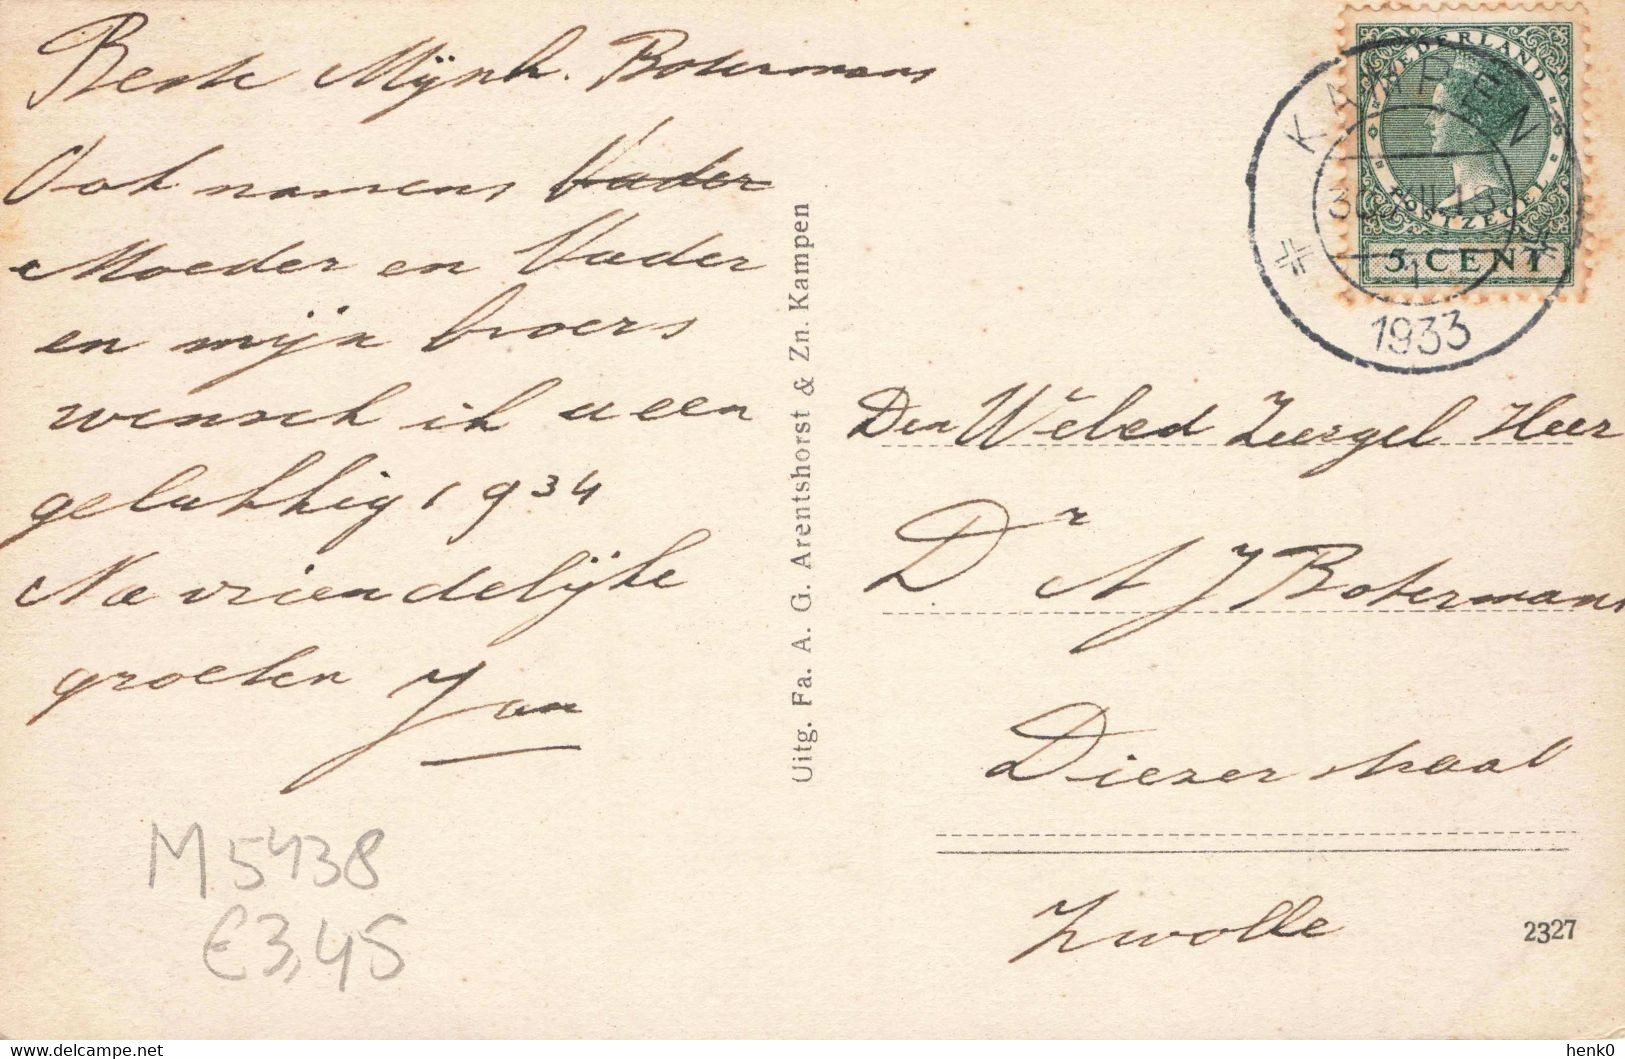 Beste Mijnh. Botermans
Ook namens Vader
Moeder en Vader
en mijn broers
wensch ik u een
gelukkig 1934
Na vriendelijke
groeten Jan
M5438
€3,45
Uitg. Fa. A. G. Arentshorst & Zn. Kampen
NEDERLAND
POSTZEGEL
5 CENT
KAMPEN
1
1933
Den WelEd Zeergel Heer
Dr A J Botermans
Diezerstraat
Zwolle
2327
delcampe.net
henk0